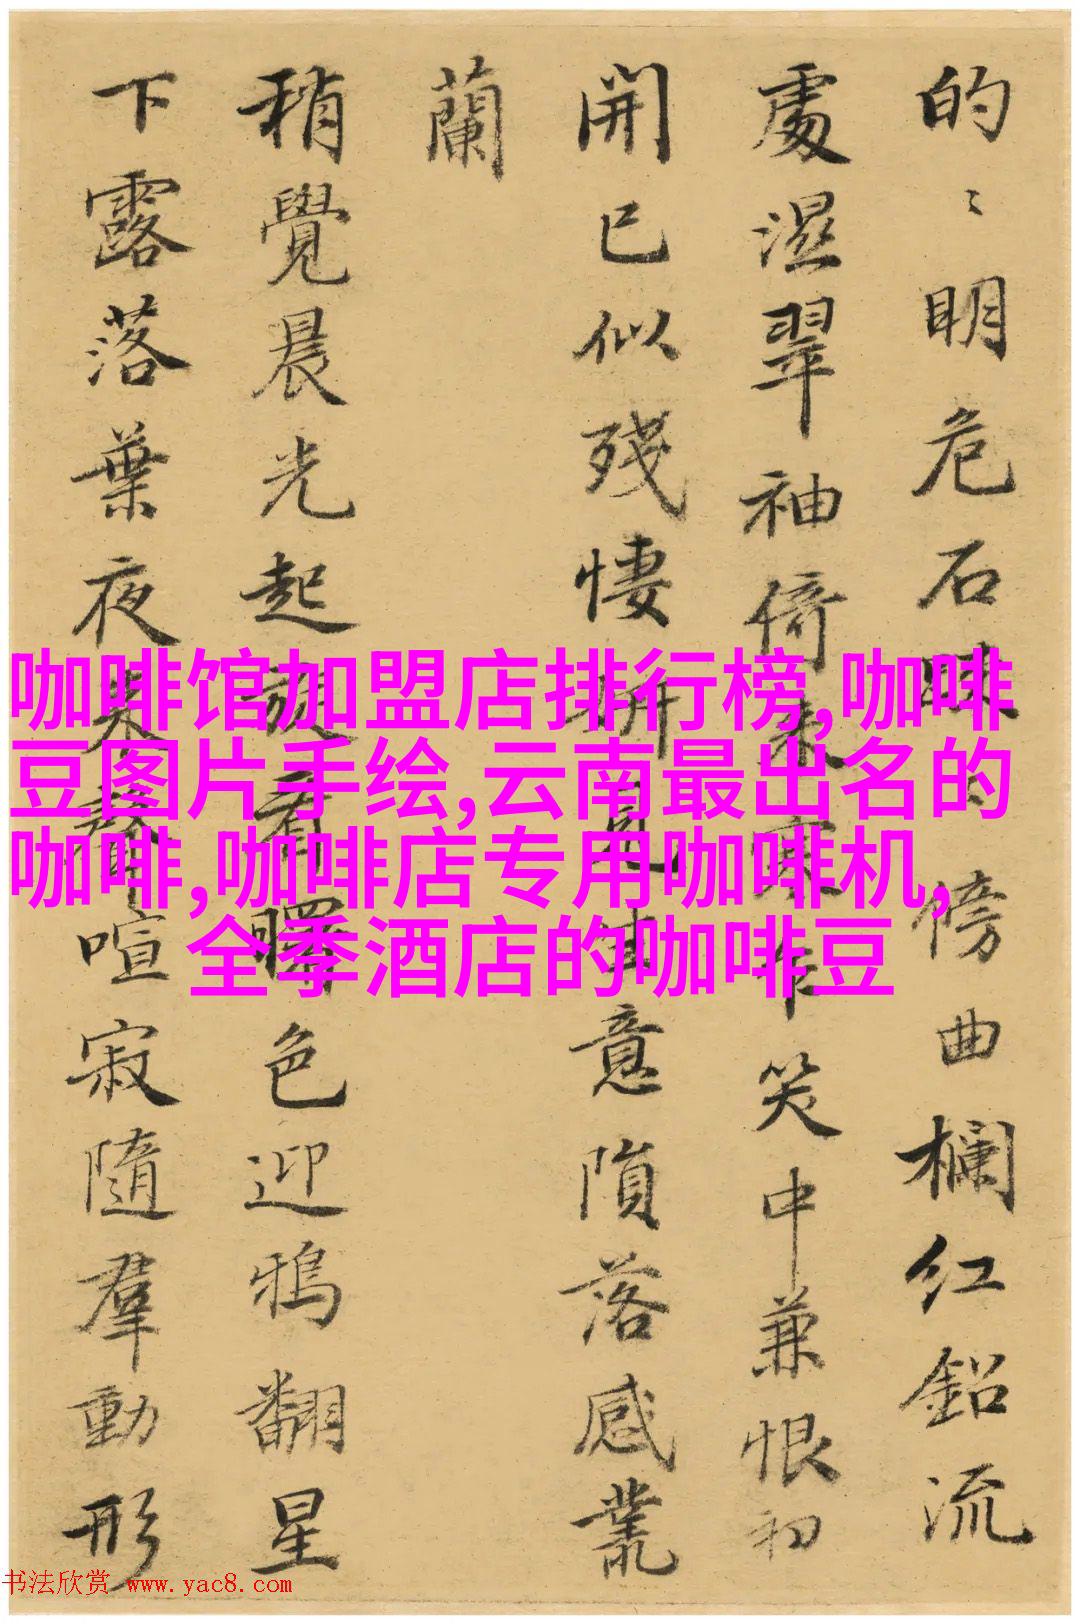 的〻明危石
傍曲欄红鉛流
處濕翠袖倚
寒作笑中兼恨初
開已似殘悽
意隕落感叢
蘭
稍覺晨光起
看曙色迎鴉翻星
下露落葉夜
喧寂隨羣動形
咖啡馆加盟店排行榜,咖啡
豆图片手绘,云南最出名的
咖啡,咖啡店专用咖啡机,
全季酒店的咖啡豆
书法欣赏 www.yac8.com